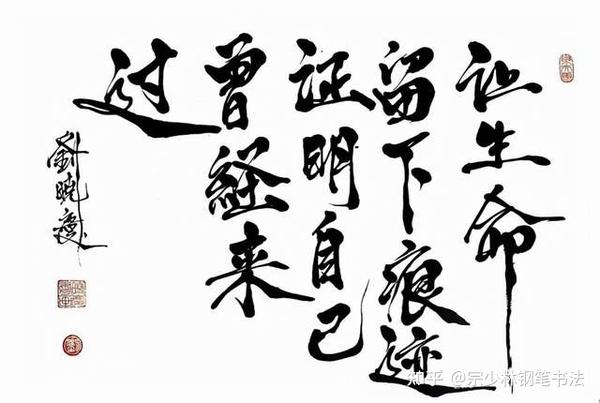 让生命
留下痕迹
证明自己
曾経来
过
劉晓慶
知乎 @宗少林钢笔书法